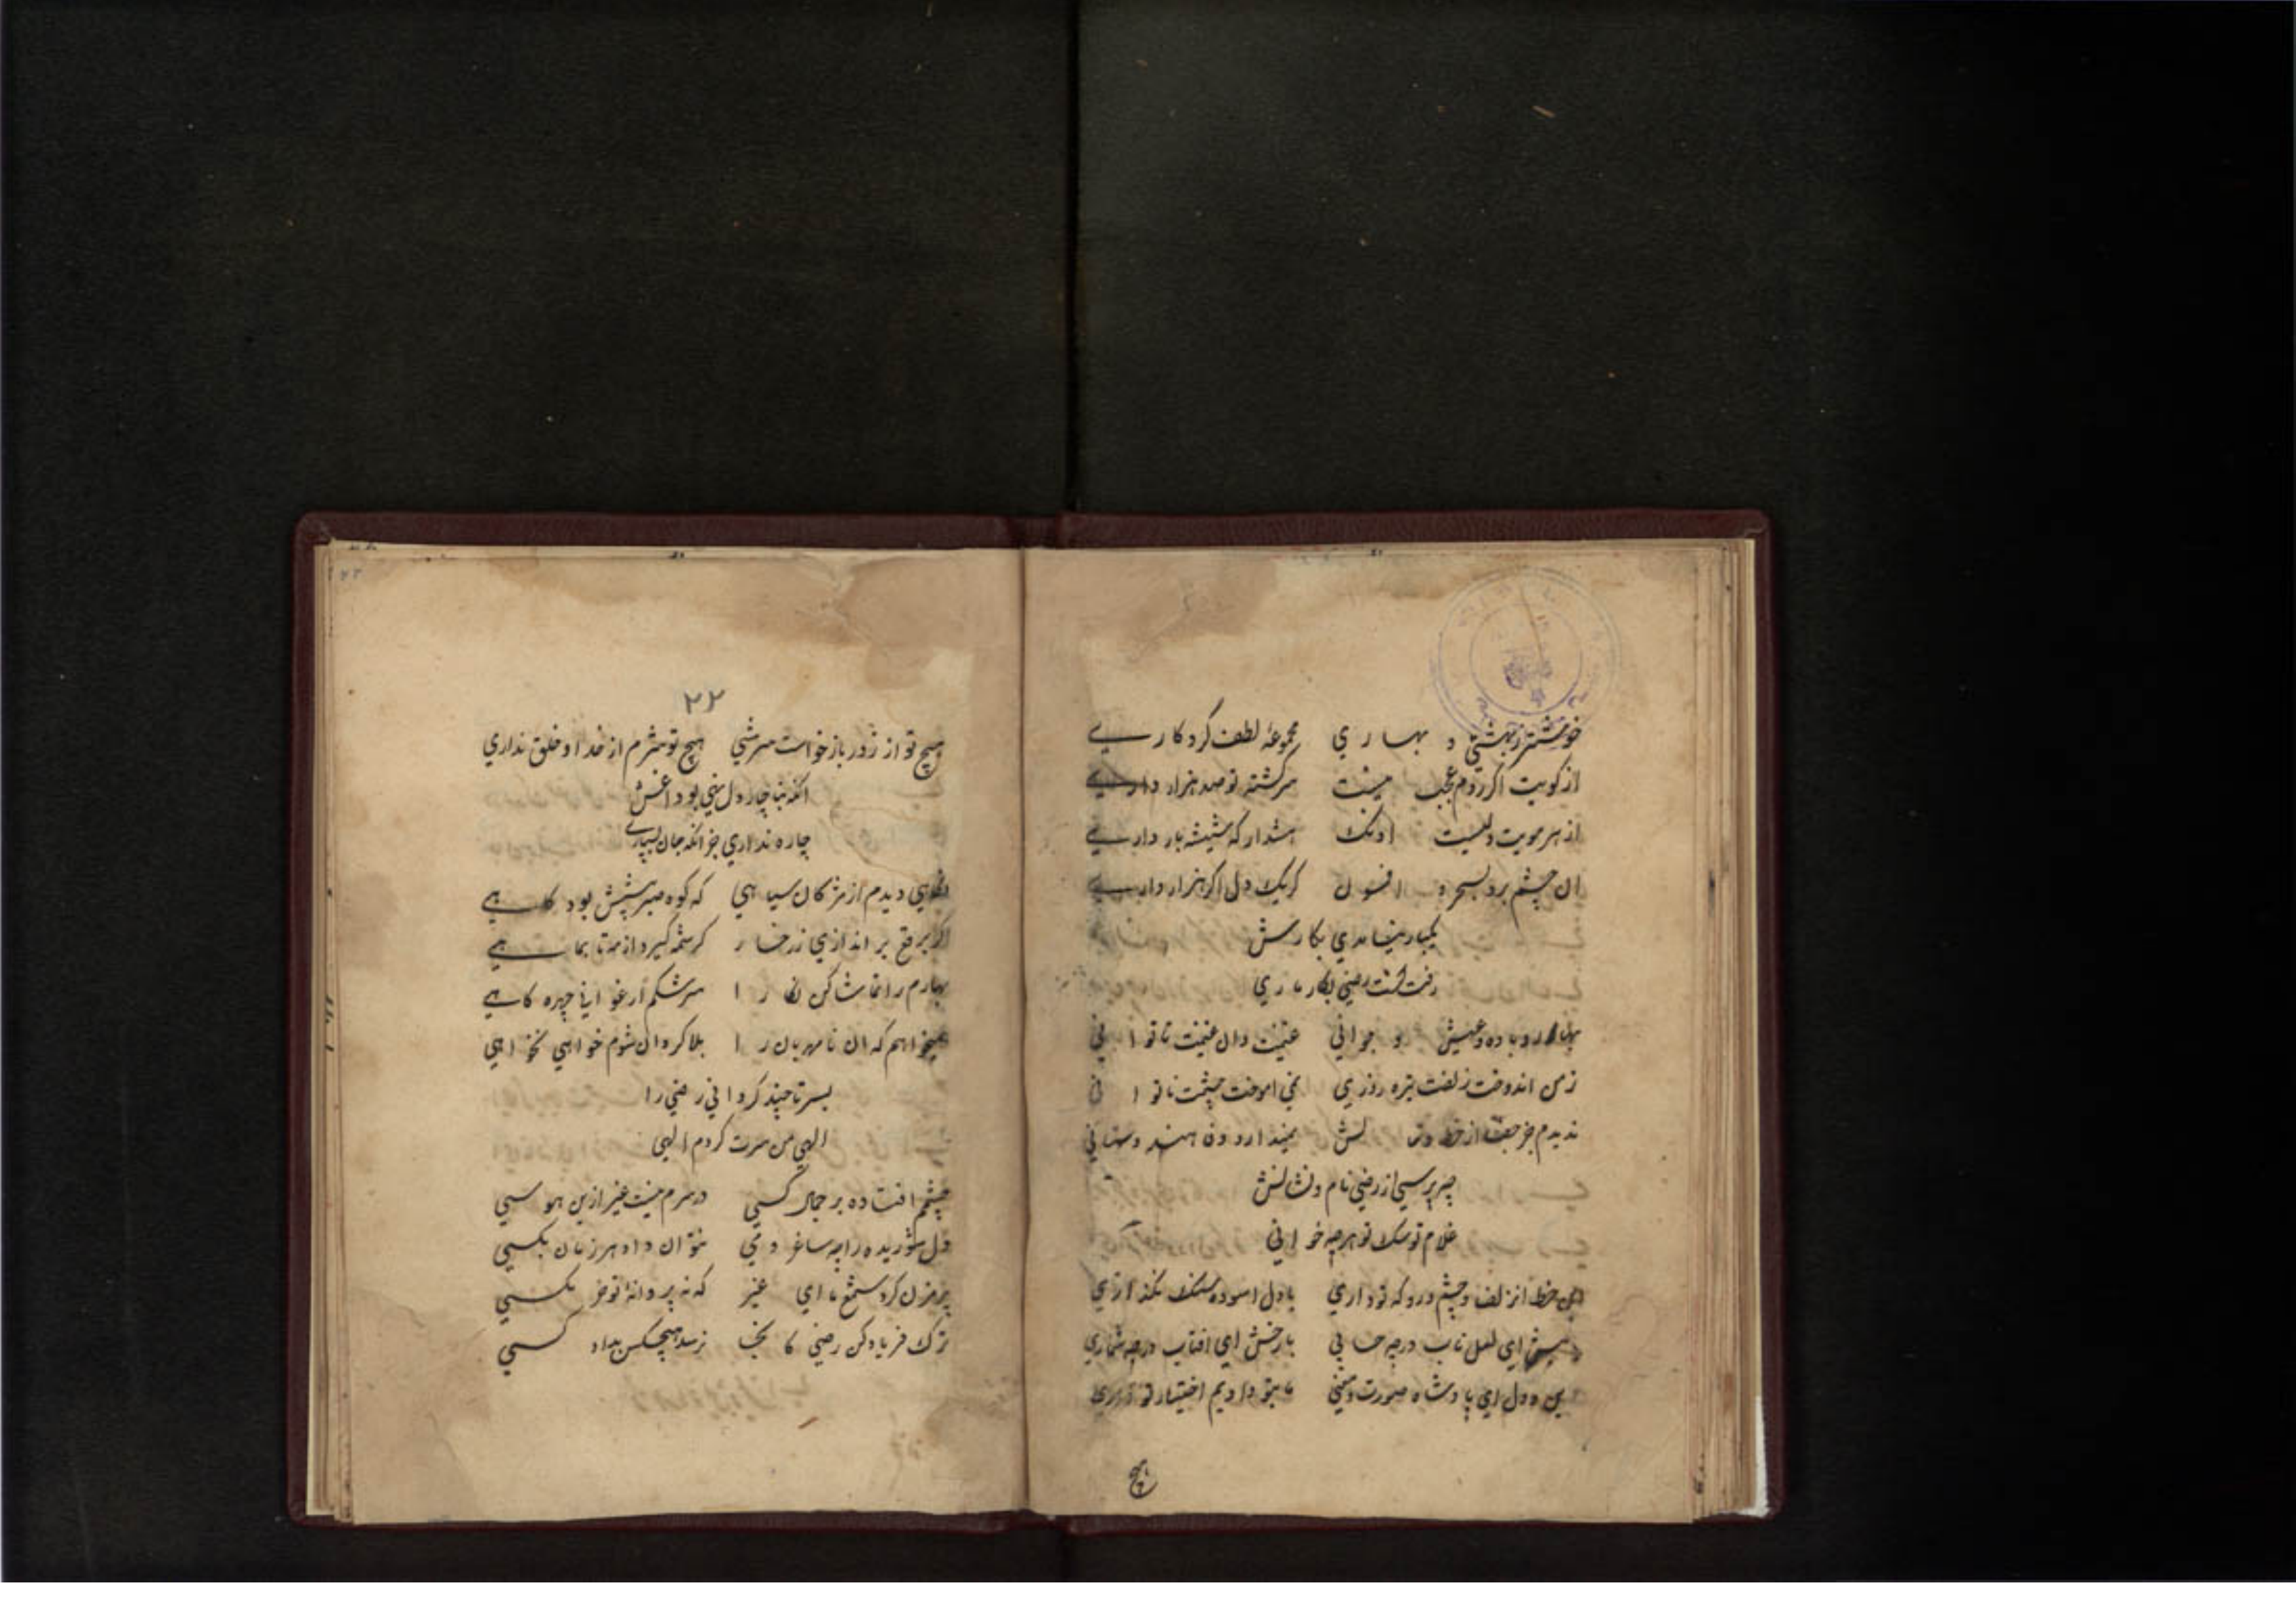 خوشتر ز بهشتی و بهاری مجموعهٔ لطف کردکاری
از کویت اکر روم عجب نیست سرکشته تو صد هزار داری
از هر مویت دلیست اونک هشدار که شیشه بار داری
ان چشم برد بسحر و افسون کر یک دل اکر هزار داری
یکبار نیامدی بکارش
رفت رضی بکار
بهار و باده و عیش و جوانی غنیمت دان غنیمت تا توانی
ز من اندوخت زلفت تیره روزی اموخت چشمت ناتوانی
ندیدم جز از خط و لش ندارد هندوستانی
چه پرسی از رضی نام و نشانش
غلام تو سک تو هر چه خوانی
این خط از زلف و چشم و رو که تو داری با دل اسوده سنک نکذاری
پیش ای لعل ناب در چه حسابی با رخش ای افتاب در چه شماری
دین و دل ای پادشاه صورت و معنی ما بتو دادیم اختیار تو داری
هیچ
۲۲
هیچ تو از روز بازخواست نترسی هیچ تو شرم از خدا و خلق نداری
انکه بناچار دل نهی بود اغش
چاره نداری جز انکه جان بسپاری
نکاهی دیدم از مژکان سیاهی که کوه صبر پیشش بود کاهی
کر برقع بر اندازی ز رخسار کرشمه کیرد از مه تا بماهی
بهارم را تماشا کن نکارا سرشکم ارغوانی چهره کاهی
همیخواهم که ان نامهربان را بلا کردان شوم خواهی نخواهی
بسر تا چند کردانی رضی را
الهی من سرت کردم الهی
چشمم افتاده بر جمال کسی در سرم نیست غیر ازین هوسی
دل شوریده را به ساغر و می نتوان داد هر زمان بکسی
پر مزن کرد شمع ما ای غیر که نه پروانهٔ تو خر مکسی
ترک فریاد کن رضی کانجا نرسد هیچکس بداد کسی